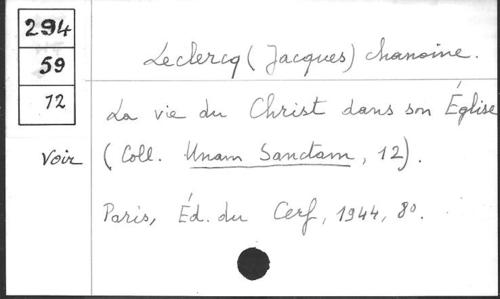 294
59
12
Voir
Leclercq (Jacques) chanoine.
La vie du Christ dans son Église
(Coll. Unam Sanctam, 12).
Paris, Éd. du Cerf, 1944, 8°.